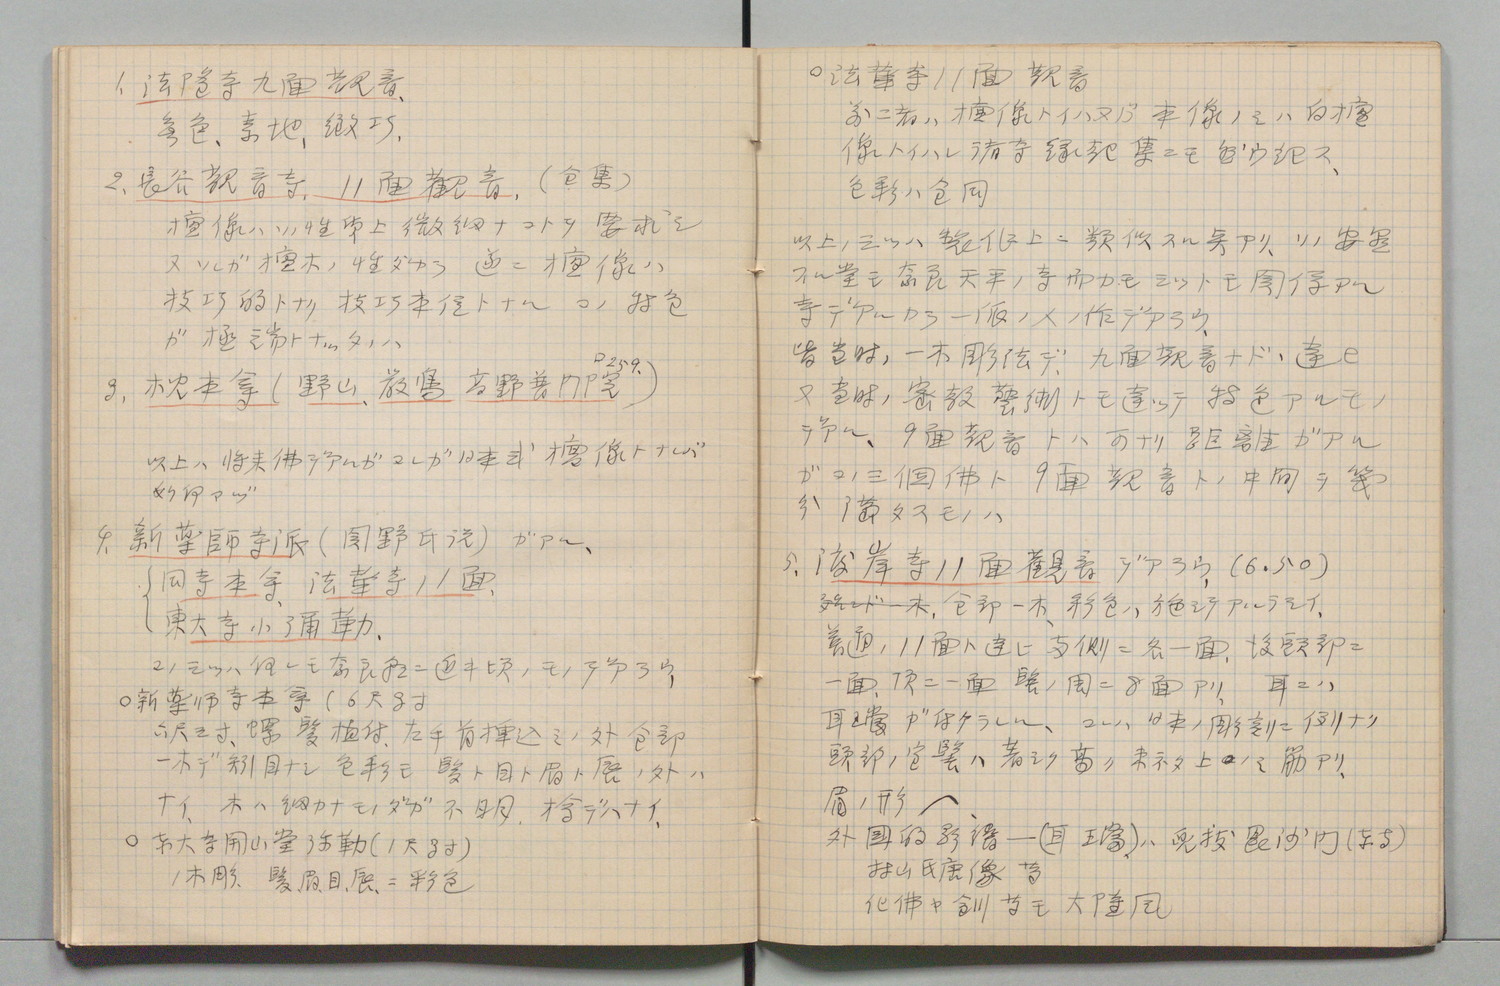 1. 法隆寺九面観音、
着色、素地、緻巧、
2. 長谷観音寺、11面觀音、(仝集)
檀像ハソノ性質上微細ナコトヲ要求シ
又ソレガ檀木ノ性ダカラ 逆ニ檀像ハ
技巧的トナリ 技巧本位トナル コノ特色
ガ極端トナッタノハ
3. 枕本尊(野山、厳島 高野普門院)
P259.
以上ハ将来佛デアルガコレガ日本式檀像トナレバ
如何ナルヅ
4. 新薬師寺派(関野氏説)ガアル、
同寺本尊、法華寺11面、
東大寺小弥勒、
コノ三ツハ何レモ奈良 ニ近キ頃ノモノデアラウ、
○新薬師寺本尊(6尺3寸
六尺三寸、螺髪植付、左手首挿込ミノ外仝部
一木デ 目ナシ 色彩モ 髪ト目ト眉ト唇ノ外ハ
ナイ、木ハ細カナモノダガ不明、檜デハナイ、
○東大寺開山堂弥勒(1尺3寸)
1木彫、髪、眉、目、唇、ニ彩色
○法華寺11面観音
前二者ハ檀像トイハヌガ本像ノミハ白檀
像トイハレ諸寺縁起集ニモ サウ記ス、
色彩ハ仝同
以上ノ三ツハ製作上ニ類似スル点アリ、ソノ安置
スル堂モ奈良天平ノ寺 而カモ三ツトモ関係アル
寺デアルカラ一派ノ人ノ作デアラウ、
皆当時ノ一木彫法デ、九面観音ナド、違ヒ
又当時ノ密教藝術トモ違ッテ特色アルモノ
デアル、9面観音トハ可ナリ距離ガアル
ガコノ三個佛ト9面観音トノ中間ヲ幾
分 満タスモノハ
5. 渡岸寺11面觀音デアラウ、(6.50)
殆ンド一木、仝部一木、彩色ハ施シテアルラシイ、
普通ノ11面ト違ヒ両側ニ各一面、後頭部ニ
一面、頂ニ一面 髪ノ周ニ8面アリ、 耳ニハ
耳璫ガ付ケラレル、コレハ日本ノ彫刻ニ例ナシ
頭部ノ宝髻ハ著シク高ク 束ネタ上ノミ筋アリ、
眉ノ形 ヘ、
外国的影譜―(耳璫)ハ兜抜毘沙門(東寺)
村山氏唐像等
化佛ヤ釧等モ大陸風